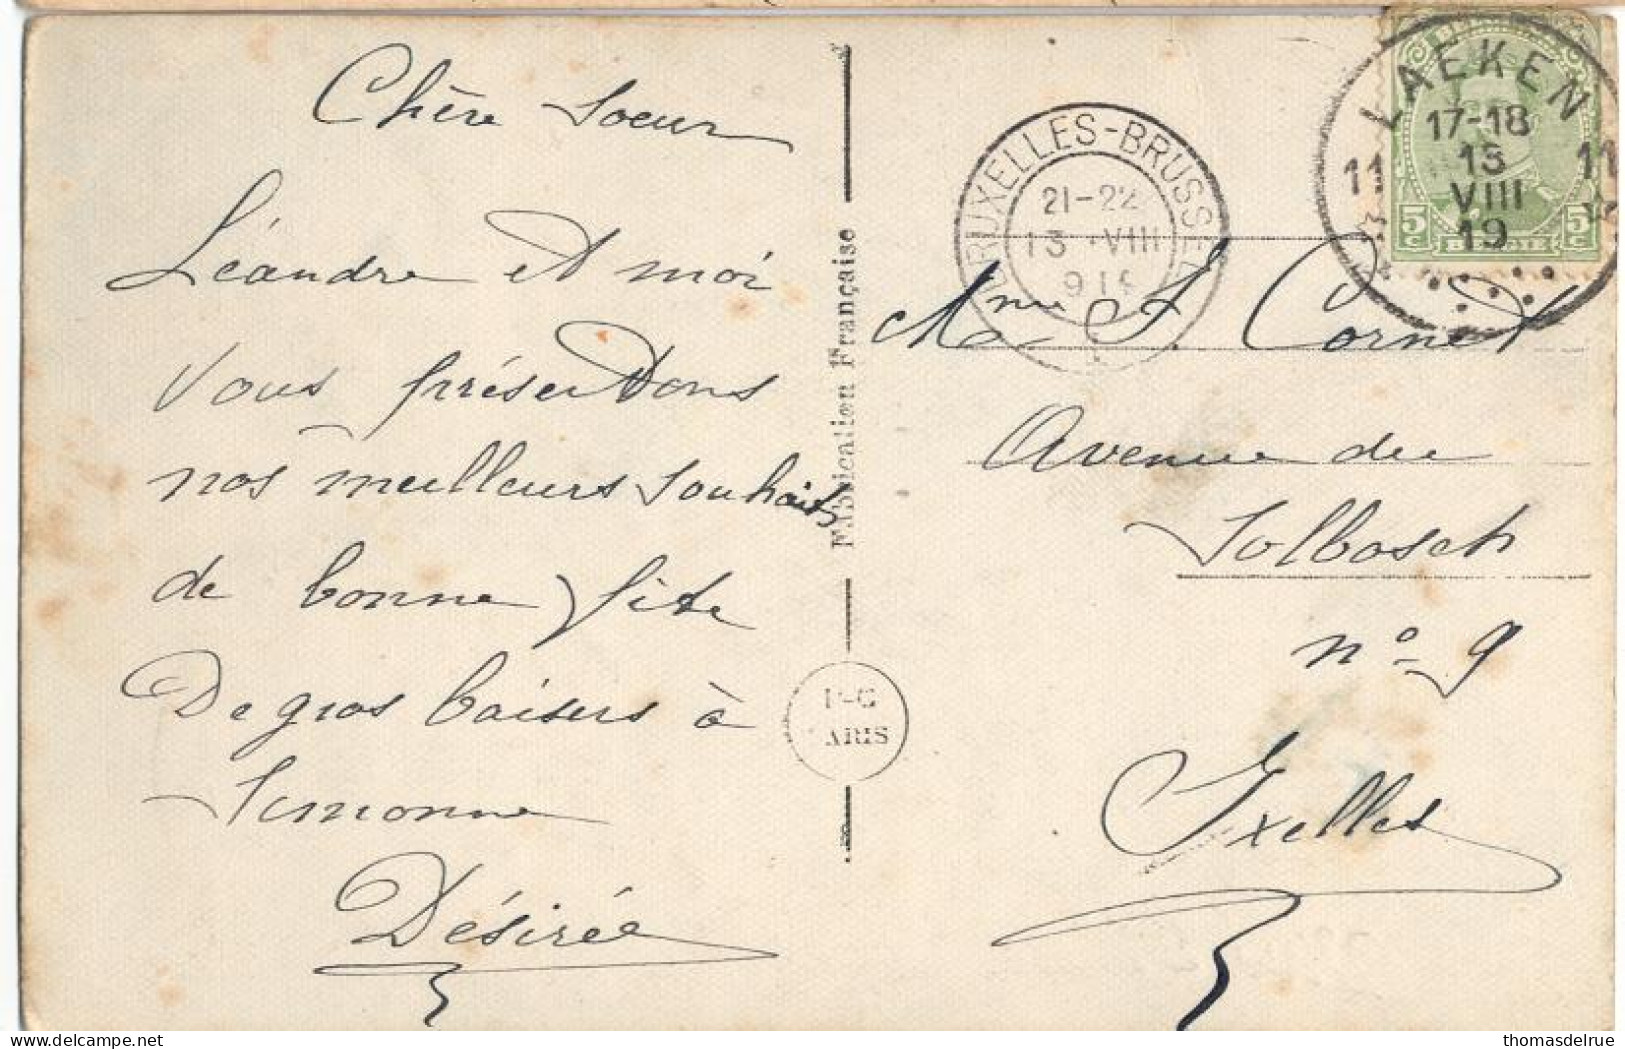 Chère Soeur
Léandre et moi
Vous présentons
nos meilleurs souhaits
de bonne fête
De gros baisers à
Simonne
Désirée
Fabrication Française
PARIS
BRUXELLES-BRUSSEL
21-22
13 VIII
LAEKEN
17-18
11 13 11
VIII
19
5c BELGIË 5c
Mme F. Cornet
Avenue du
Solbosch
n° 9
Ixelles
thomasdelrue